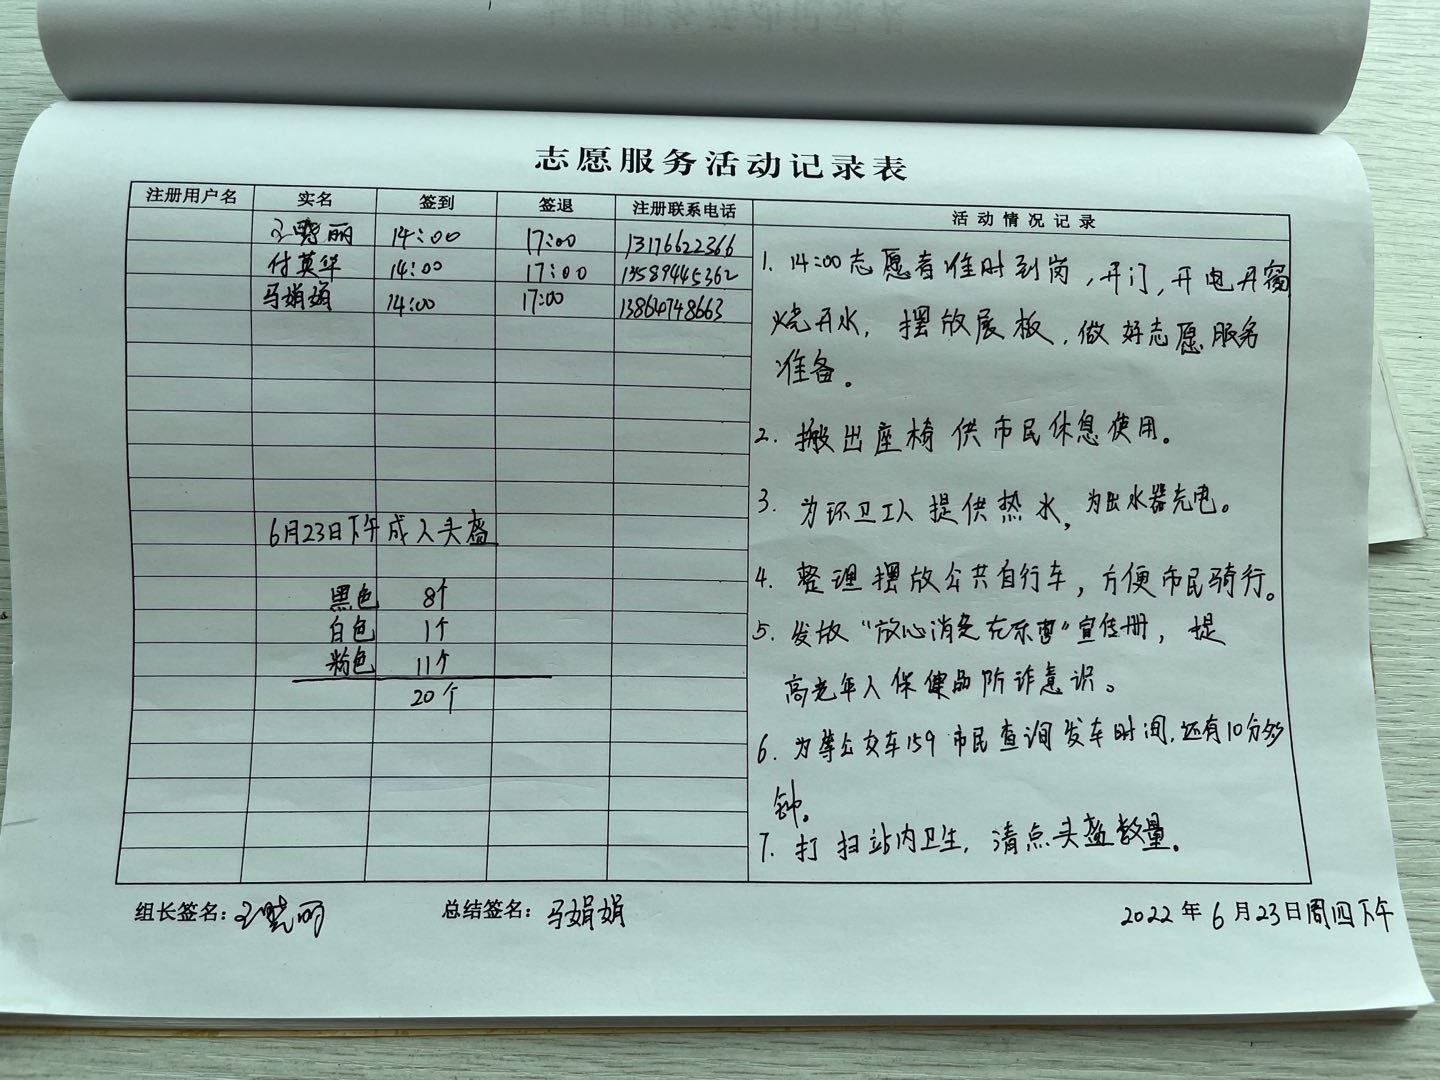 志愿服务活动记录表
注册用户名 实名 签到 签退 注册联系电话 活动情况记录
王晓丽 14:00 17:00 13176622366
付英华 14:00 17:00 13589445362
马娟娟 14:00 17:00 13864748663
6月23日下午成人头盔
黑色 8个
白色 1个
粉色 11个
20个
1. 14:00志愿者准时到岗,开门,开电开窗
烧开水,摆放展板,做好志愿服务
准备。
2. 搬出座椅供市民休息使用。
3. 为环卫工人提供热水,为出水器充电。
4. 整理摆放公共自行车,方便市民骑行。
5. 发放“放心消费在东营”宣传册,提
高老年人保健品防诈意识。
6. 为等公交车159市民查询发车时间,还有10分多
钟。
7. 打扫站内卫生,清点头盔数量。
组长签名:王晓丽 总结签名:马娟娟 2022年6月23日周四下午